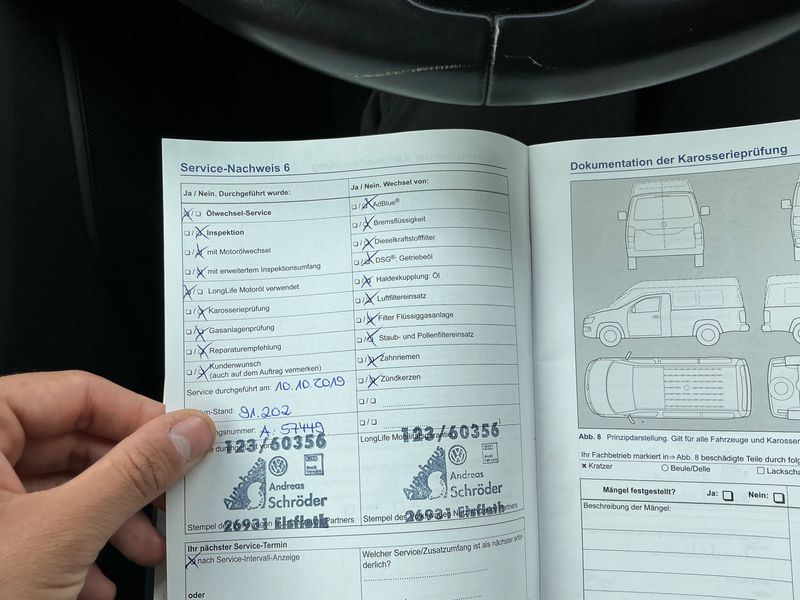 Service-Nachweis 6
Ja / Nein. Durchgeführt wurde:
Ölwechsel-Service
Inspektion
mit Motorölwechsel
mit erweitertem Inspektionsumfang
LongLife Motoröl verwendet
Karosserieprüfung
Gasanlagenprüfung
Reparaturempfehlung
Kundenwunsch
(auch auf dem Auftrag vermerken)
Service durchgeführt am: 10.10.2019
-Stand: 91.202
gsnummer: A: 57449
123/60356
Andreas
Schröder
26931 Elsfleth
Stempel des Partners
Ja / Nein. Wechsel von:
AdBlue®
Bremsflüssigkeit
Dieselkraftstofffilter
DSG®: Getriebeöl
Haldexkupplung: Öl
Luftfiltereinsatz
Filter Flüssiggasanlage
Staub- und Pollenfiltereinsatz
Zahnriemen
Zündkerzen
LongLife
123/60356
Andreas
Schröder
26931 Elsfleth
Stempel des Partners
Ihr nächster Service-Termin
nach Service-Intervall-Anzeige
oder
Welcher Service/Zusatzumfang ist als nächster erfor-
derlich?
Dokumentation der Karosserieprüfung
Abb. 8 Prinzipdarstellung. Gilt für alle Fahrzeuge und
Ihr Fachbetrieb markiert in ⇒ Abb. 8 beschädigte Teile durch
× Kratzer ○ Beule/Delle □
Mängel festgestellt? Ja: □ Nein: □
Beschreibung der Mängel: